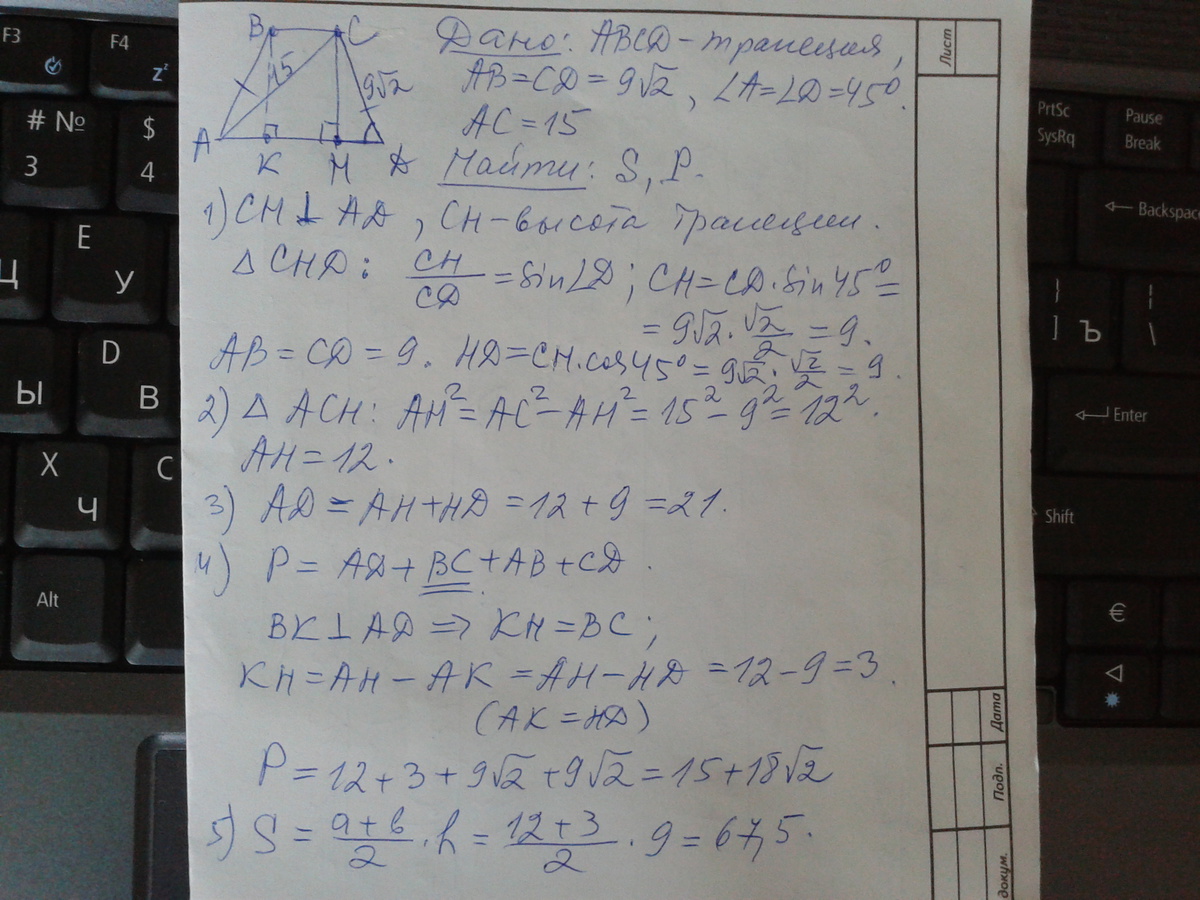 Дано: ABCD - трапеция,
AB = CD = 9√2, ∠A = ∠D = 45°.
AC = 15
Найти: S, P.
B C
15 9√2
A K H D
1) CH ⊥ AD, CH - высота трапеции.
△ CHD: CH/CD = sin∠D; CH = CD · sin 45° =
= 9√2 · √2/2 = 9.
AB = CD = 9. HD = CH · cos 45° = 9√2 · √2/2 = 9.
2) △ ACH: AH² = AC² - AH² = 15² - 9² = 12².
AH = 12.
3) AD = AH + HD = 12 + 9 = 21.
4) P = AD + BC + AB + CD.
BK ⊥ AD ⇒ KH = BC;
KH = AH - AK = AH - HD = 12 - 9 = 3.
(AK = HD)
P = 12 + 3 + 9√2 + 9√2 = 15 + 18√2
5) S = a + b/2 · h = 12 + 3/2 · 9 = 67,5.
Лист
Дата
Подп.
докум.
F3
F4
z
# №
3
$
4
E
У
Ц
D
В
Ы
X
Ч
C
Alt
PrtSc
SysRq
Pause
Break
Backspace
}
]
Ъ
\
Enter
Shift
€